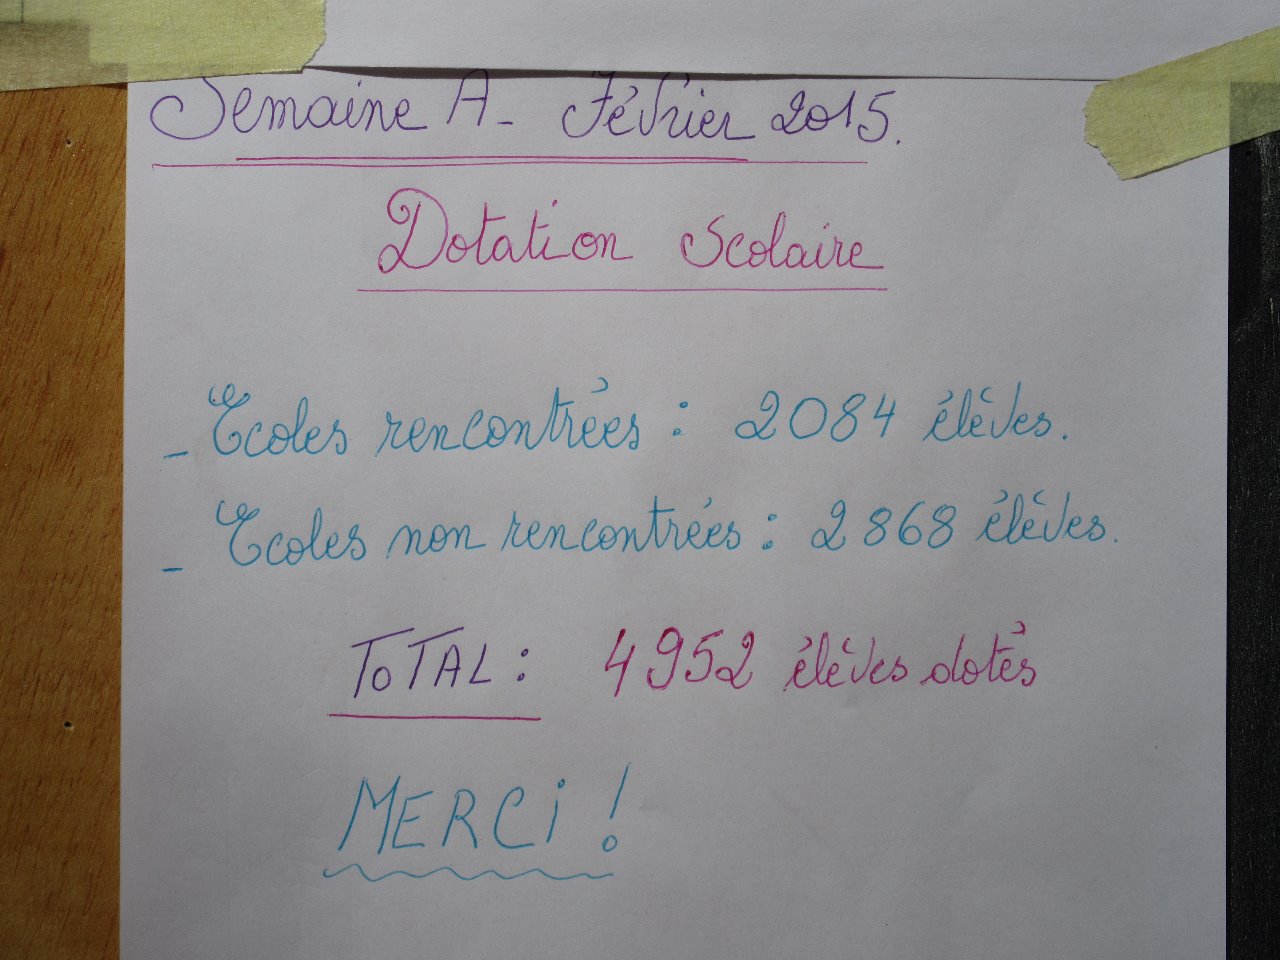 Semaine A - Février 2015.
Dotation Scolaire
- Ecoles rencontrées : 2084 élèves.
- Ecoles non rencontrées : 2868 élèves.
ToTAL : 4952 élèves dotés
MERCi !